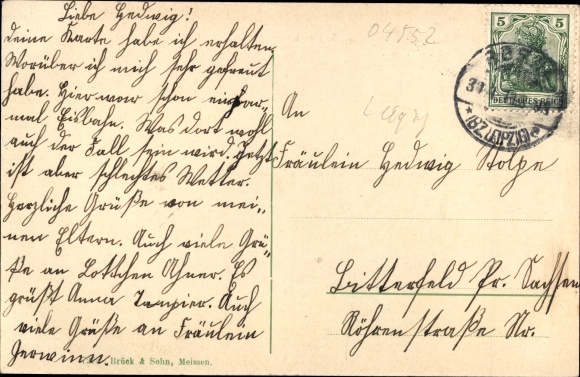 Liebe Hedwig!
Deine Karte habe ich erhalten
Worüber ich mich sehr gefreut
habe. Hier war schon ein paar
mal Eisbahn. Was dort wohl
auch der Fall sein wird. Jetzt
ist aber schlechtes Wetter.
Herzliche Grüße von mei-
nen Eltern. Auch viele Grü-
ße an Lottchen Ahner. Es
grüßt Anna Tampier. Auch
viele Grüße an Fräulein
Gerwinn.
Brück & Sohn, Meissen.
04552
5 5
DEUTSCHES REICH
*(BZ. LEIPZIG)*
An
Fräulein Hedwig Stolpe
Bitterfeld Pr. Sachsen
Röhrenstraße Nr.